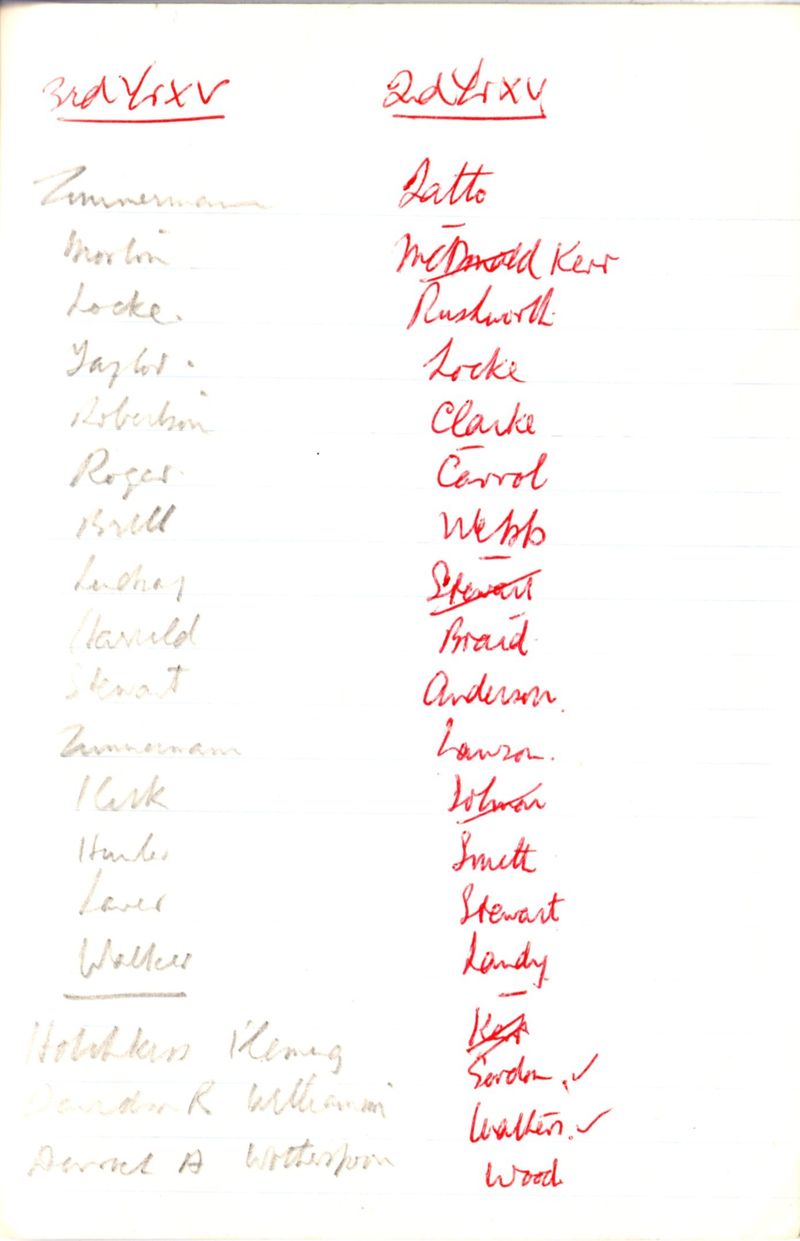 3rd Yr XV
Zimmermann
Morton
Locke.
Taylor.
Robertson
Roger.
Brett
Lindsay
Harrild
Stewart
Zimmermann
Kirk
Hunter
Laver
Walker
Hotchkiss Fleming
Davidson R Williamson
A Wotherspoon
2nd Yr XV
Latto
McDonald Kerr
Rushworth.
Locke
Clarke
Carrol
Webb
Stewart
Braid.
Anderson.
Lawson.
Smith
Stewart
Landy
Kerr
Gordon. ✓
Walters. ✓
Wood